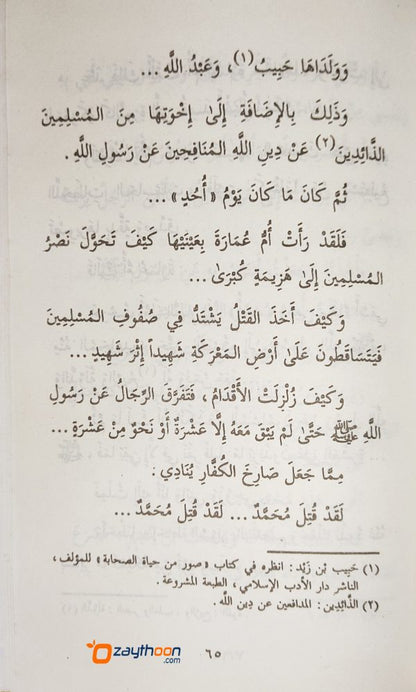 وَوَلَدَاهَا حَبِيبُ(١)، وَعَبْدُ اللَّهِ ...
وَذَلِكَ بِالإِضَافَةِ إِلَىٰ إِخْوَتِهَا مِنَ المُسْلِمِينَ
الذَّائِدِينَ(٢) عَنْ دِينِ اللَّهِ المُنَافِحِينَ عَنْ رَسُولِ اللَّهِ .
ثُمَّ كَانَ مَا كَانَ يَوْمُ « أُحُدٍ » ...
فَلَقَدْ رَأَتْ أُمُّ عُمَارَةَ بِعَيْنَيْهَا كَيْفَ تَحَوَّلَ نَصْرُ
المُسْلِمِينَ إِلَىٰ هَزِيمَةٍ كُبْرَىٰ ...
وَكَيْفَ أَخَذَ القَتْلُ يَشْتَدُّ فِي صُفُوفِ المُسْلِمِينَ
فَيَتَسَاقَطُونَ عَلَىٰ أَرْضِ المَعْرَكَةِ شَهِيداً إِثْرَ شَهِيدٍ ...
وَكَيْفَ زُلْزِلَتْ الأَقْدَامُ ، فَتَفَرَّقَ الرِّجَالُ عَنْ رَسُولِ
اللَّهِ ﷺ حَتَّىٰ لَمْ يَبْقَ مَعَهُ إِلَّا عَشْرَةٌ أَوْ نَحْوٌ مِنْ عَشْرَةٍ ...
مِمَّا جَعَلَ صَارِخَ الكُفَّارِ يُنَادِي :
لَقَدْ قُتِلَ مُحَمَّدٌ ... لَقَدْ قُتِلَ مُحَمَّدٌ ...
(١) حَبِيب بْن زَيْد : انظره في كتاب « صور من حياة الصحابة » للمؤلف ،
الناشر دار الأدب الإسلامي ، الطبعة المشروعة .
(٢) الذَّائِدِين : المدافعين عن دِين اللَّه .
٦٥
zaythoon
.com